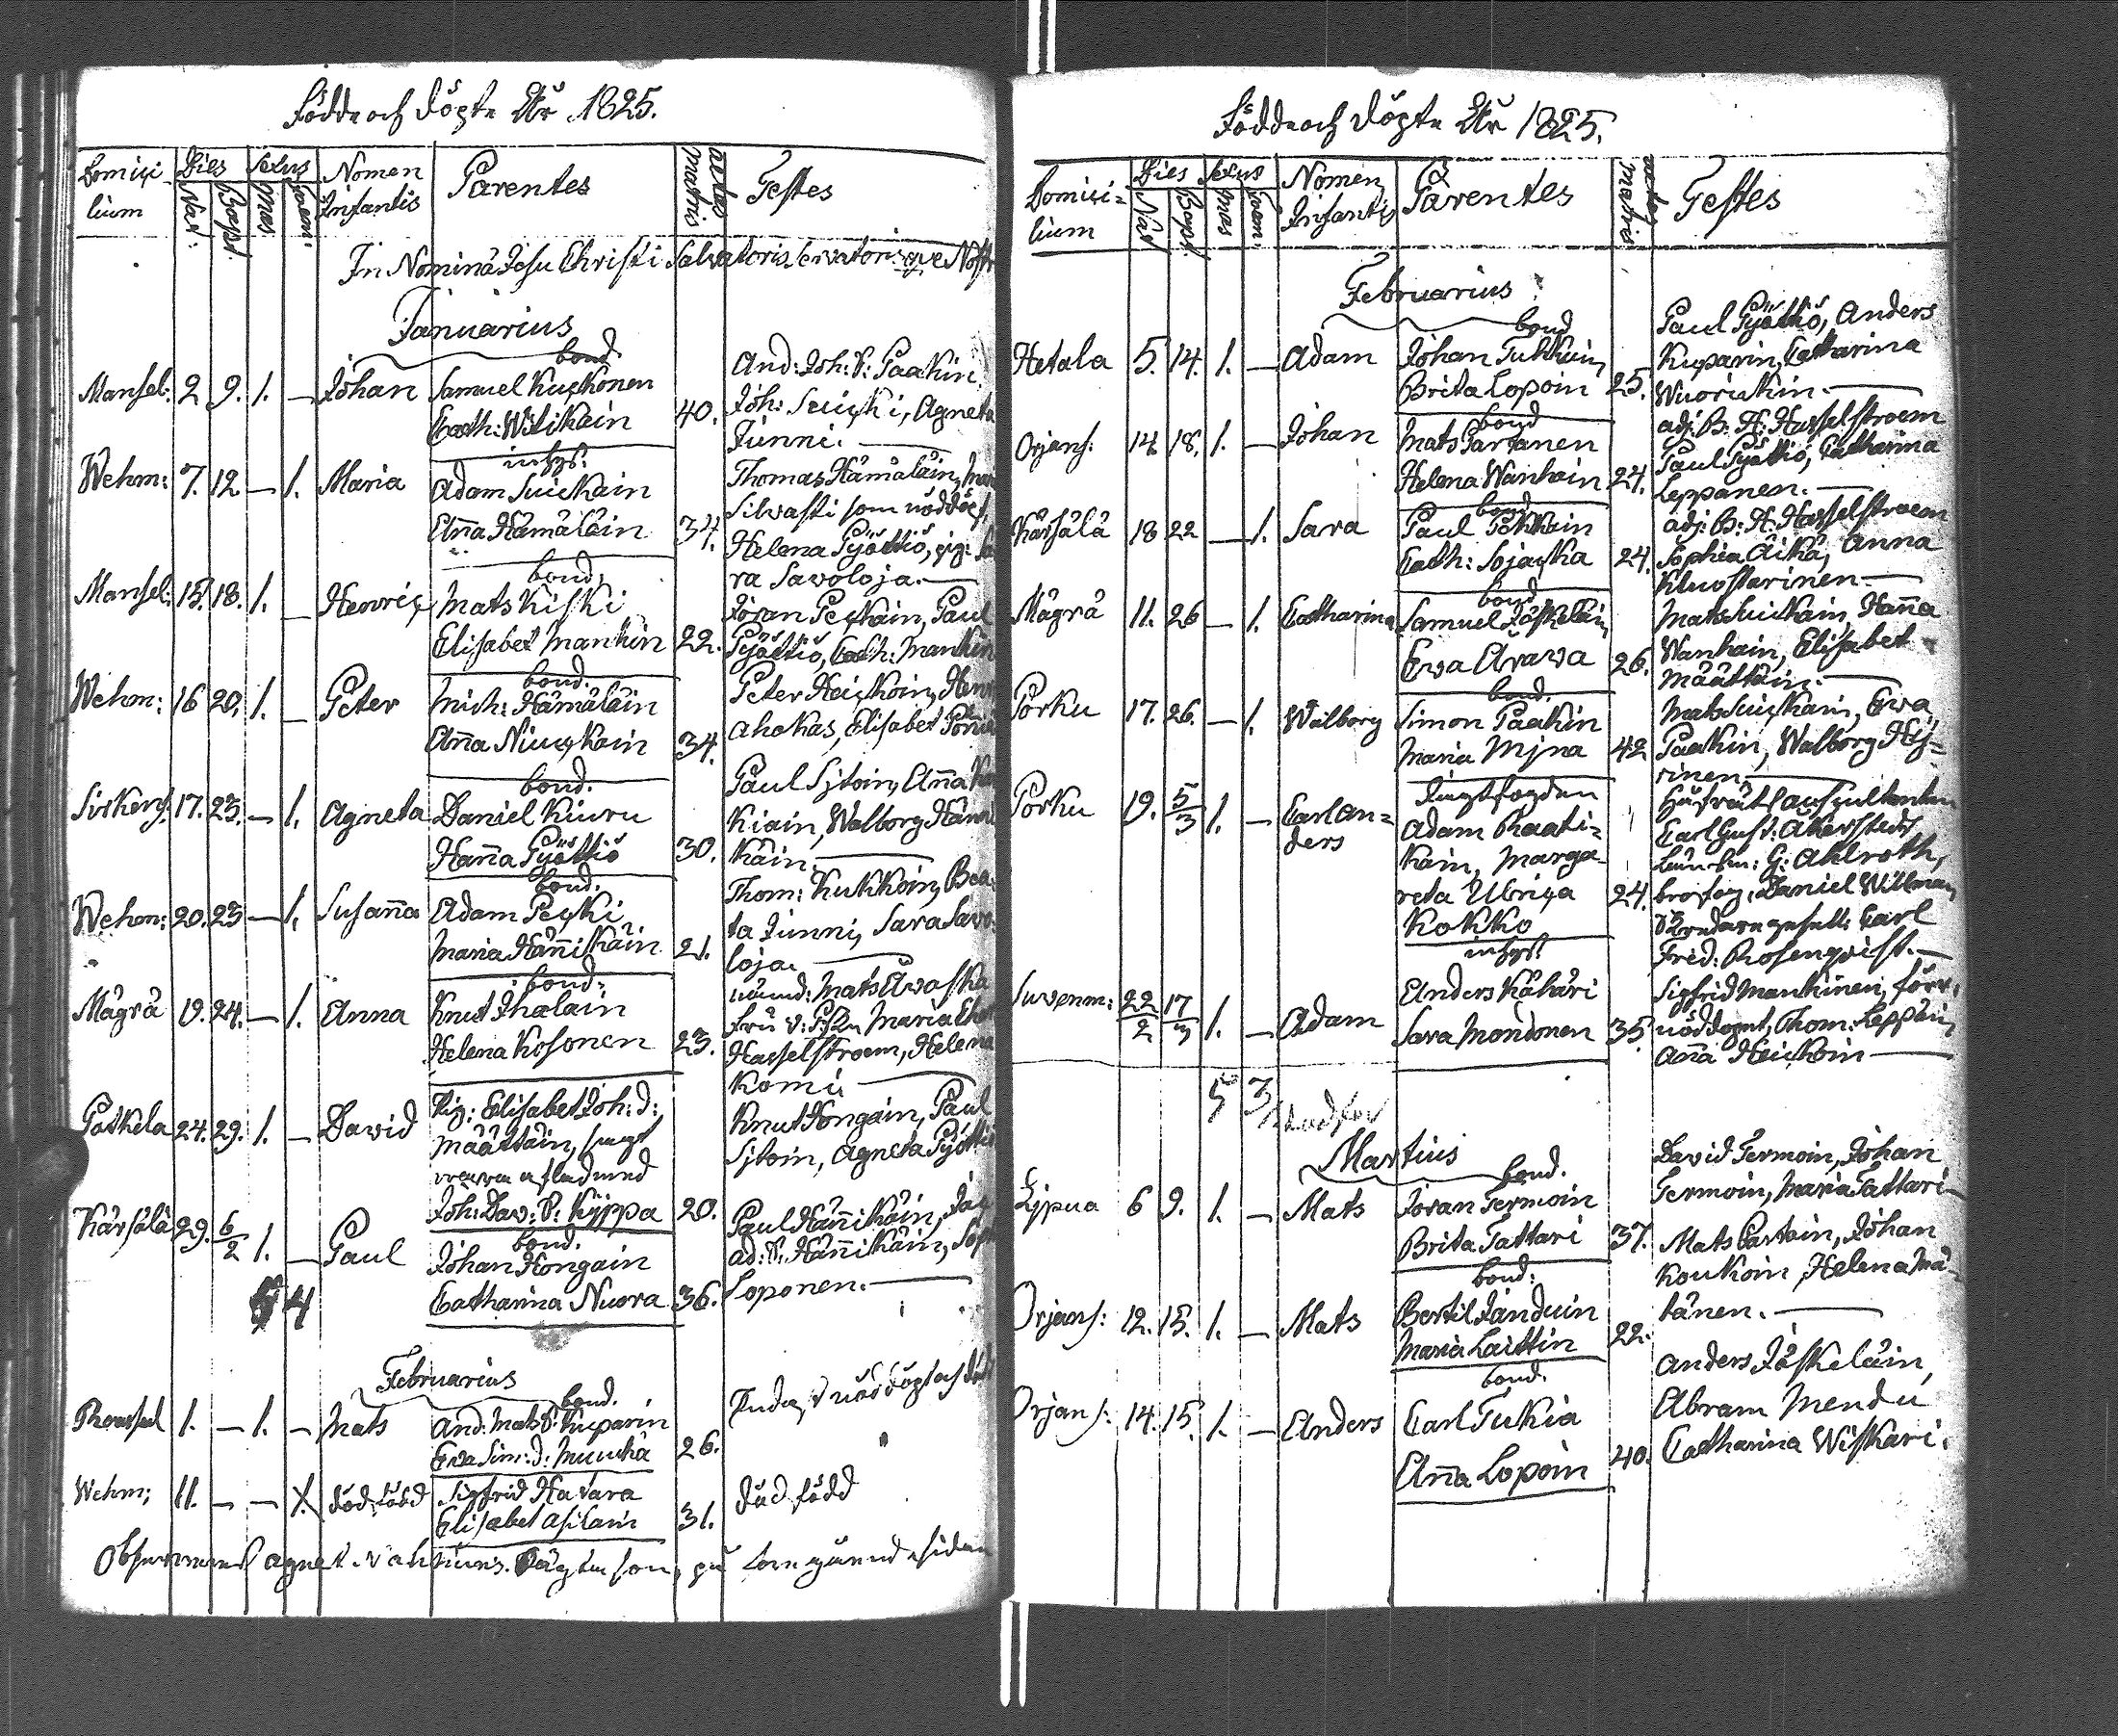 Födde och döpte År 1825.
Domici
lium
Dies
Nat.
Bapt.
Sexus
Mas
Foem:
Nomen
Infantis
Parentes
aetas
matris
Testes
In Nomina Jesu Christi Salvatoris Servatorisqve Nostr
Januarius
Mansel: 2 9. 1. — Johan
bond.
Samuel Kuckonen
Cath: Wilikain 40.
And: Joh: S: Paakin
Joh: Suicki, Agneta
Junni.
Wehm: 7. 12 — 1. Maria
inhys:
Adam Suickain
Anna Hämäläin 34.
Thomas Hämäläin,
Silvasti som nöddöpt,
Helena Pyöttiö, pig: Sa
ra Savoloja.
Mansel: 15. 18. 1. — Henric
bond.
Mats Kiski
Elisabet Mankin 22.
Jöran Peckain, Paul
Pyöttiö, Cath: Mankin
Wehm: 16 20. 1. — Peter
bond.
Mich: Hämäläin
Anna Niuckain 34.
Peter Heickoin, Henr
Ahokas, Elisabet
Sirkens. 17. 23. — 1. Agneta
bond.
Daniel Kiuru
Hanna Pyöttiö 30.
Paul Sjtoin, Anna
Kiain, Walborg Hänni
käin
Wehm: 20. 23 — 1. Susanna
bond.
Adam Pecki
Maria Hännikäin 21.
Thom: Kukkoin, Bea
ta Junni, Sara Savo
loja.
Mägrä 19. 24. — 1. Anna
bond:
Knut Ihalain
Helena Kosonen 23.
nämd: Mats Awaska
Fru Maria
Hasselstroem, Helena
Komi
Patkela 24. 29. 1. — David
Pig: Elisabet Joh: d:
Määttäin, sagt
vara aflad med
Joh: Dav: S: Kyppa 20.
Knut Hongain, Paul
Sjtoin, Agneta Pyöttiö
Kärsälä 29. 6/2 1. — Paul
bond.
Johan Hongain
Catharina Nuora 36.
Paul Hännikäin,
ad: S: Hännikäin, Sop
Loponen.
5 4
Februarius
1. — 1. — Mats
bond.
And: Mats S: Kuparin
Eva Sim: d: Muukä 26.
nöddöpt och död
Wehm: 11. — — 1. dödfödd
Sigfrid Hatara
Elisabet Asilain 31.
död född
Födde och döpte År 1825.
Domici=
lium
Dies
Nat
Bapt.
Sexus
Mas
Foem.
Nomen
Infantis
Parentes
aetas
matris
Testes
Februarius
Hetala 5. 14. 1. — Adam
bond
Johan Tukkuin
Brita Lopoin 25.
Paul Pyöttiö, Anders
Kuparin, Catharina
Wuorickin.
Orjans: 14. 18. 1. — Johan
bond
Mats Partanen
Helena Wanhain 24.
adj: B: H: Hasselstroem
Paul Pyöttiö, Catharina
Leppanen.
Kärsälä 18 22 — 1. Sara
bond
Paul Pekkain
Cath: Sojacka 24.
adj: B: H: Hasselstroem
Sophia Äikä, Anna
Kluostarinen
Mägrä 11. 26 — 1. Catharina
bond
Samuel Jäskeläin
Ewa Awawa 26.
Mats Suickain, Hanna
Wanhain, Elisabet
Määttäin.
Pörku 17. 26. — 1. Walborg
bond.
Simon Paakin
Maria Mjna 42
Mats Suickain, Ewa
Paakin, Walborg Hy=
rinen
Pörku 19. 5/3 1. — Carl An=
ders
Länsfogden
Adam Raati=
kain, Marga=
reta Ulrica
Kokko 24.
Hofrätts auscultanten
Carl Gust: Åkerstedt
Länsm: G: Ahlroth,
Daniel Willman,
Carl
Fred: Rosenqvist.
Suvenm: 22/2 17/3 1. — Adam
inhys.
Anders Kähäri
Sara Montonen 35
Sigfrid Mankinen, förr.
nöddöpt, Thom: Leppäin
Anna Heickoin
5 3
Martius
Lypua 6 9. 1. — Mats
bond.
Jöran Termoin
Brita Tattari 37.
David Termoin, Johan
Termoin, Maria Tattari
Orjans: 12. 15. 1. — Mats
bond:
Bertil Janduin
Maria Laittin 22.
Mats Partain, Johan
Koukoin, Helena Mä=
tänen.
Orjans: 14. 15. 1. — Anders
bond.
Carl Tukia
Anna Lopoin 40.
Anders Jäskeläin,
Abram Mendu
Catharina Wiskari.